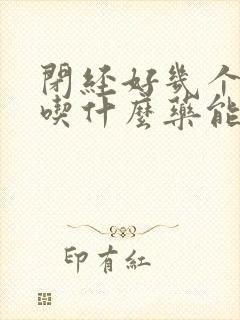 閉經好幾个
喫什麼藥能
印有紅